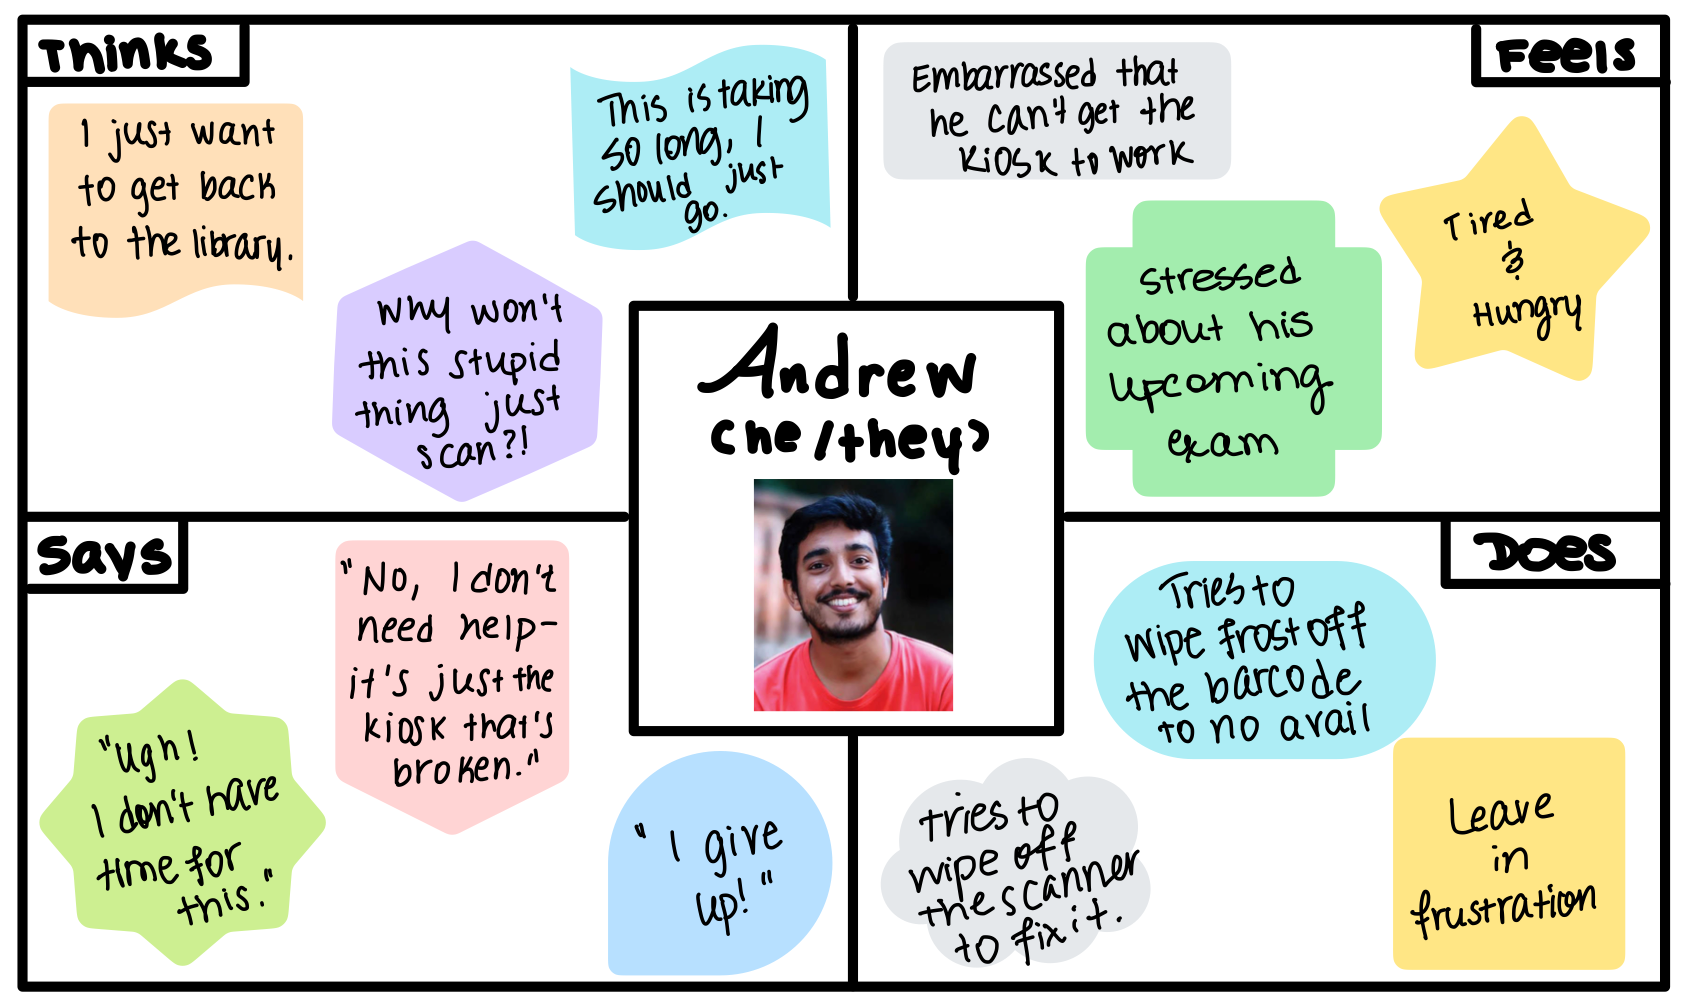 Thinks
I just want
to get back
to the library.
This is taking
so long, I
should just
go.
Why won't
this stupid
thing just
scan?!
Feels
Embarrassed that
he can't get the
kiosk to work
stressed
about his
upcoming
exam
Tired
&
Hungry
Andrew
(he/they)
Says
"Ugh!
I don't have
time for
this."
"No, I don't
need help-
it's just the
kiosk that's
broken."
"I give
up!"
Does
Tries to
wipe frost off
the barcode
to no avail
tries to
wipe off
the scanner
to fix it.
Leave
in
frustration